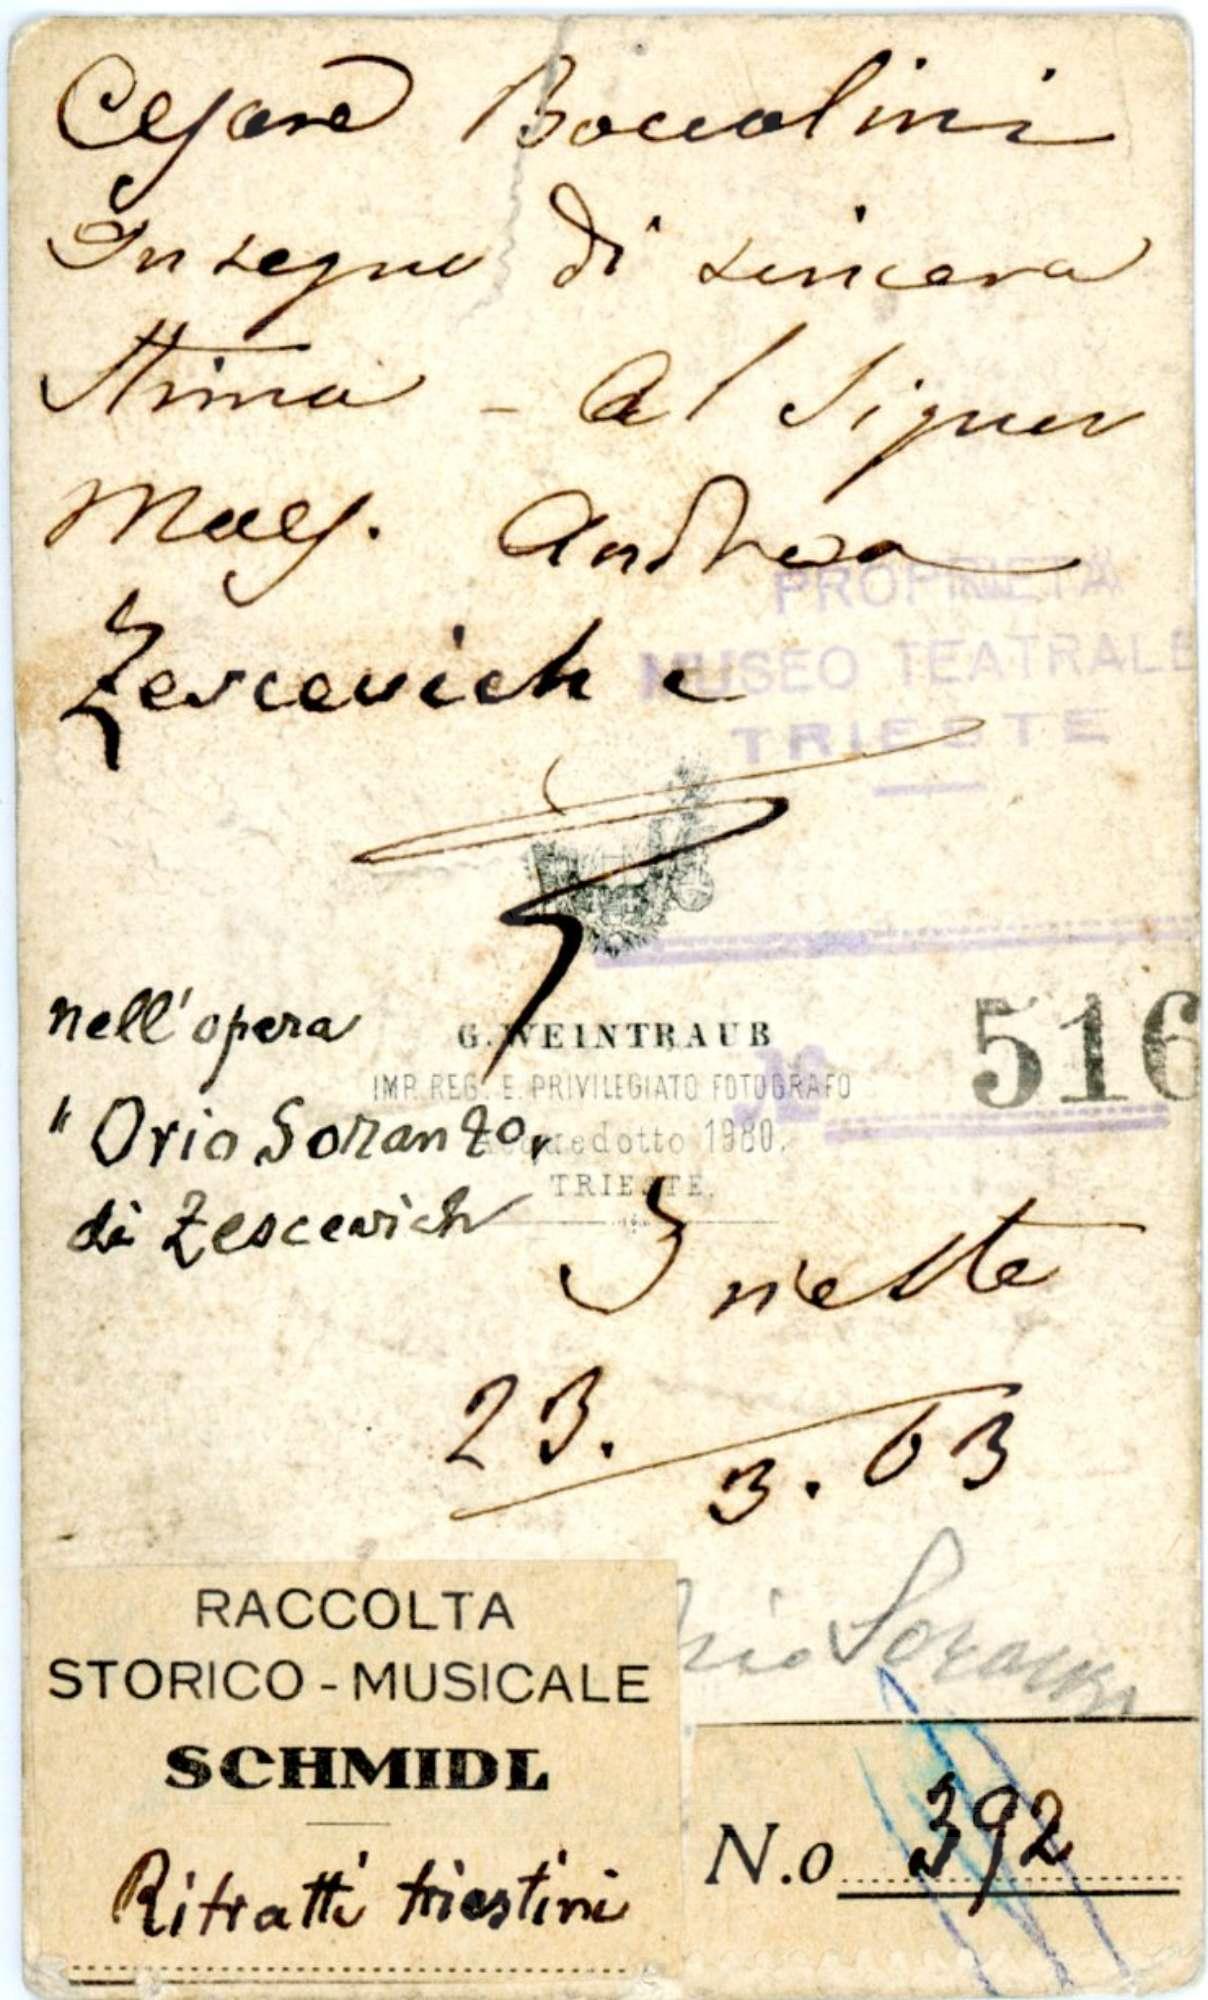 Cesare Boccolini
In segno di sincera
Stima - Al Signor
Maes. Andrea
Zescevich e
PROPRIETÀ
MUSEO TEATRALE
TRIESTE
nell'opera
"Orio Soranzo"
di Zescevich
G. WEINTRAUB
IMP. REG. E. PRIVILEGIATO FOTOGRAFO
Acquedotto 1980.
TRIESTE.
No 516
Trieste
23. 3. 63
Orio Soranzo
RACCOLTA
STORICO - MUSICALE
SCHMIDL
Ritratti triestini
N.o 392